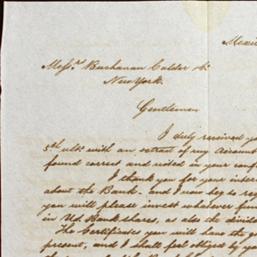 Mexi
Messrs Buchanan Calder &
New York.
Gentlemen
I duly received yo
5th ulto with an extract of my Account
found correct and noted in your conf
I thank you for your inter
about the Bank, and I now beg to re
you will please invest whatever fun
in U.S. Bank shares, as also the divide
The Certificates you will have the g
present, and I shall feel obliged by you